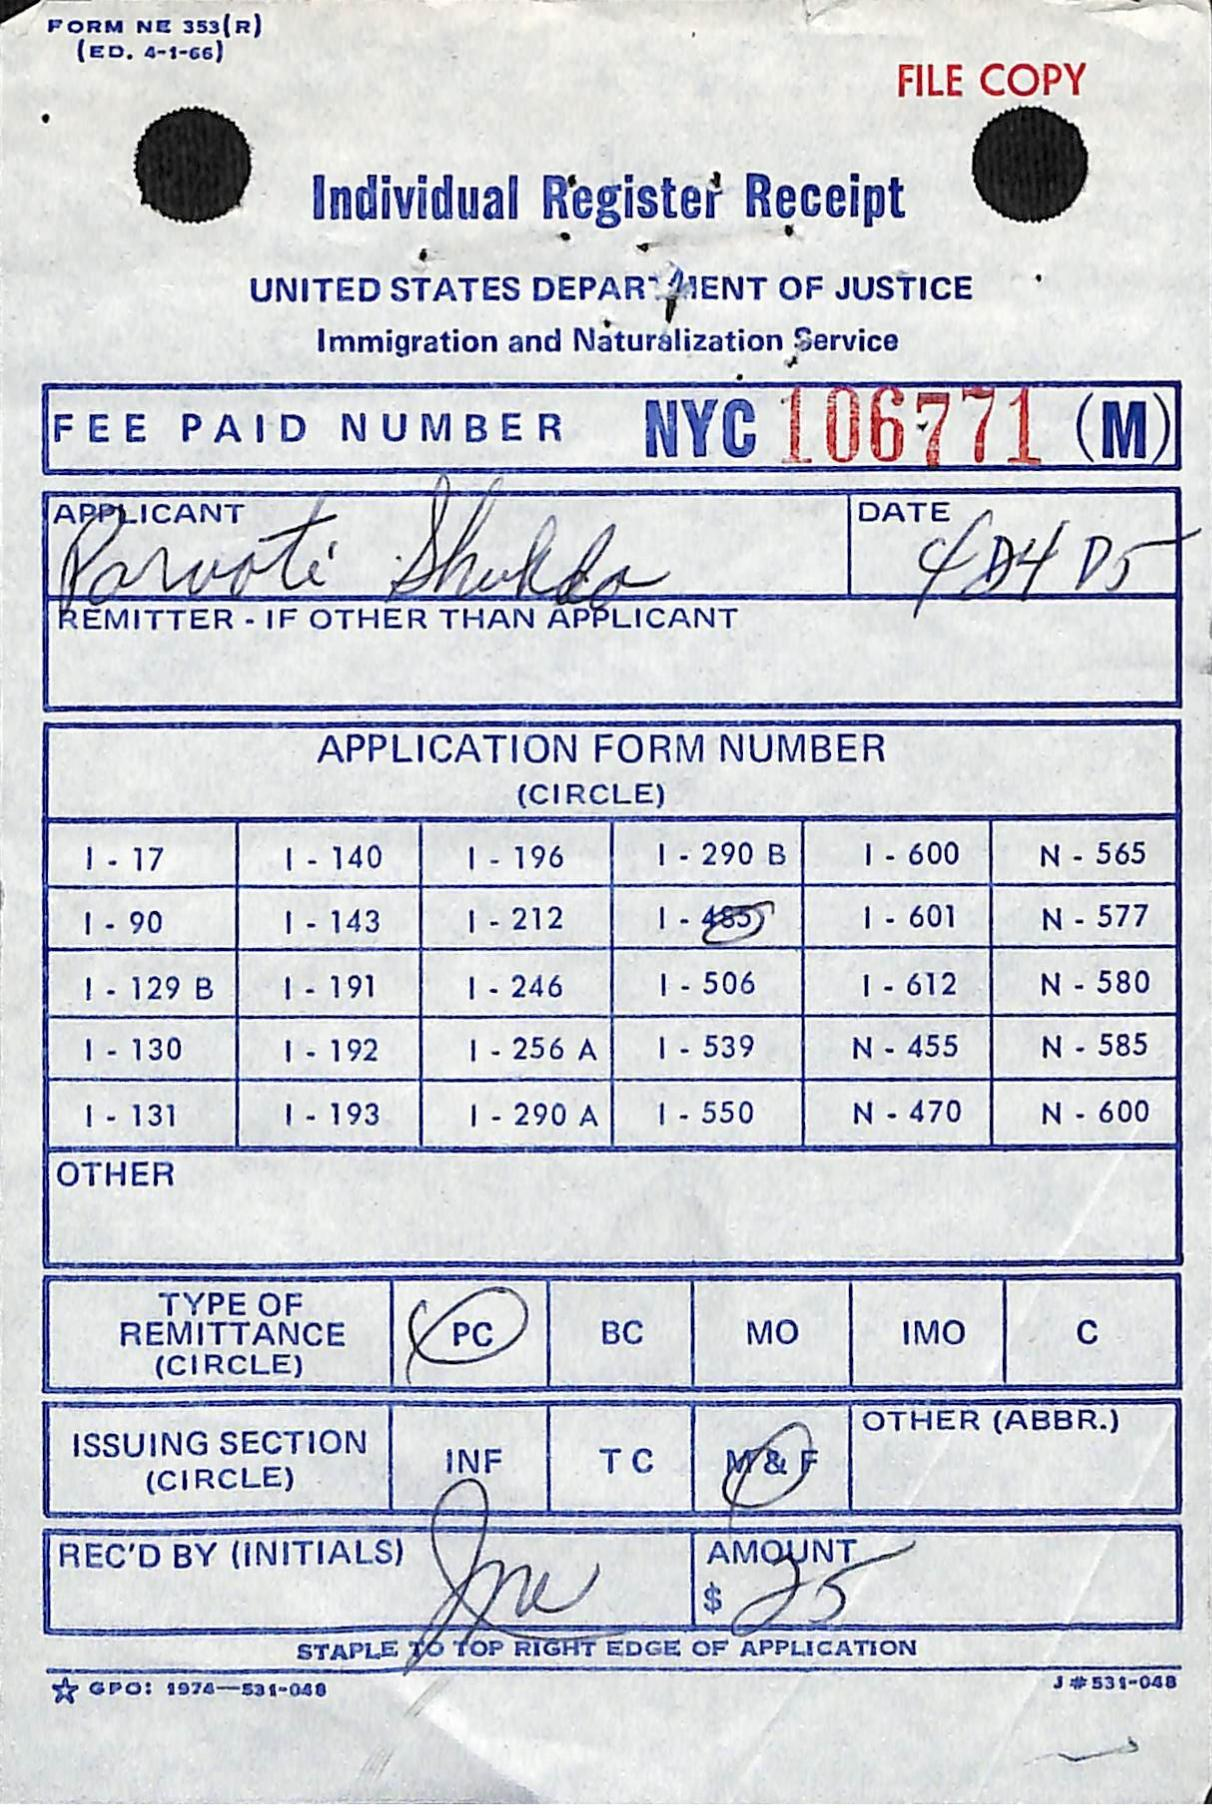 FORM NE 353(R)
(ED. 4-1-66)
FILE COPY
Individual Register Receipt
UNITED STATES DEPARTMENT OF JUSTICE
Immigration and Naturalization Service
FEE PAID NUMBER NYC 106771 (M)
APPLICANT DATE
Parvati Shukda
REMITTER - IF OTHER THAN APPLICANT
APPLICATION FORM NUMBER
(CIRCLE)
I - 17 I - 140 I - 196 I - 290 B I - 600 N - 565
I - 90 I - 143 I - 212 I - 485 I - 601 N - 577
I - 129 B I - 191 I - 246 I - 506 I - 612 N - 580
I - 130 I - 192 I - 256 A I - 539 N - 455 N - 585
I - 131 I - 193 I - 290 A I - 550 N - 470 N - 600
OTHER
TYPE OF
REMITTANCE
(CIRCLE)
PC BC MO IMO C
ISSUING SECTION
(CIRCLE)
INF T C M & F
OTHER (ABBR.)
REC'D BY (INITIALS)
AMOUNT
$ 25
STAPLE TO TOP RIGHT EDGE OF APPLICATION
☆ GPO: 1974—531-048 J#531-048